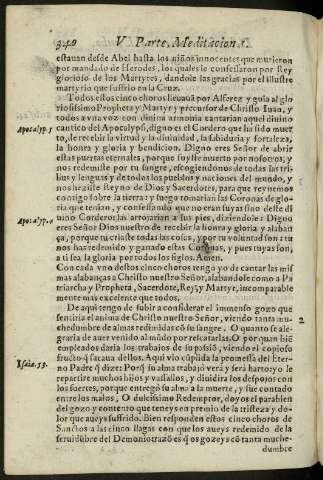 340 V Parte, Meditacion 1.
estauan desde Abel hasta los niños innocentes que murieron
por mandado de Herodes, los quales le confessaron por Rey
glorioso de los Martyres, dandole las gracias por el illustre
martyrio que sufrio en la Cruz.
Todos estos cinco choros lleuauā por Alferez y guia al glo
riosissimo Propheta y Martyr y precursor de Christo Iuan, y
todos a vna voz con diuina armonia cantarian aquel diuino
Apocalyp. 5
cantico del Apocalypsi, digno es el Cordero que ha sido muer
to, de recebir la virtud y la diuinidad, la sabiduria y fortaleza,
la honra y gloria y bendicion. Digno eres Señor de abrir
estas puertas eternales, porque fuyste muerto por nosotros, y
nos redemiste por tu sangre, escogiendonos de todas las tri
bus y lenguas y de todos los pueblos y naciones del mundo, y
nos heziste Reyno de Dios y Sacerdotes, para que reynemos
contigo sobre la tierra: y luego tomarian las Coronas de glo
ria que tenian, y confessando que no eran suyas sino deste di
Apocalyp. 4
uino Cordero: las arrojarian a sus pies, diziendole: Digno
eres Señor Dios nuestro de recebir la honra y gloria y alaban
ça, porque tu criaste todas las cosas, y por tu voluntad son: tu
nos has redemido y ganado estas Coronas, y pues tuyas son,
a ti sea la gloria por todos los siglos. Amen.
Con cada vno destos cinco choros tengo yo de cantar las mis
mas alabanças a Christo nuestro Señor, alabandole como a Pa
triarcha y Propheta, Sacerdote, Rey, y Martyr, incomparable
mente mas excelente que todos.
De aqui tengo de subir a considerar el immenso gozo que
sentiria el anima de Christo nuestro Señor, viendo tanta mu-
2
chedumbre de almas redimidas cō su sangre. O quanto se ale-
graria de auer venido al mūdo por rescatarlas. O por quan biē
empleados daria los trabajos de su passiō, viendo el copioso
fructo q̄ sacaua dellos. Aqui vio cūplida la promessa del Eter-
Isaiæ. 53.
no Padre q̄ dize: Porq̄ su alma trabajò verà y serà harto: yo le
repartire muchos hijos y vassallos, y diuidira los despojos con
los fuertes, porque entregò su alma a la muerte, y fue contado
entre los malos. O dulcissimo Redemptor, doy os el parabien
del gozo y contento que teneys en premio de la tristeza y do-
lor que aueys suffrido. Bien responden estos cinco choros de
Sanctos a las cinco llagas con que los aueys redemido de la
seruidūbre del Demonio: razō es q̄ os gozeys cō tanta muche-
dumbre